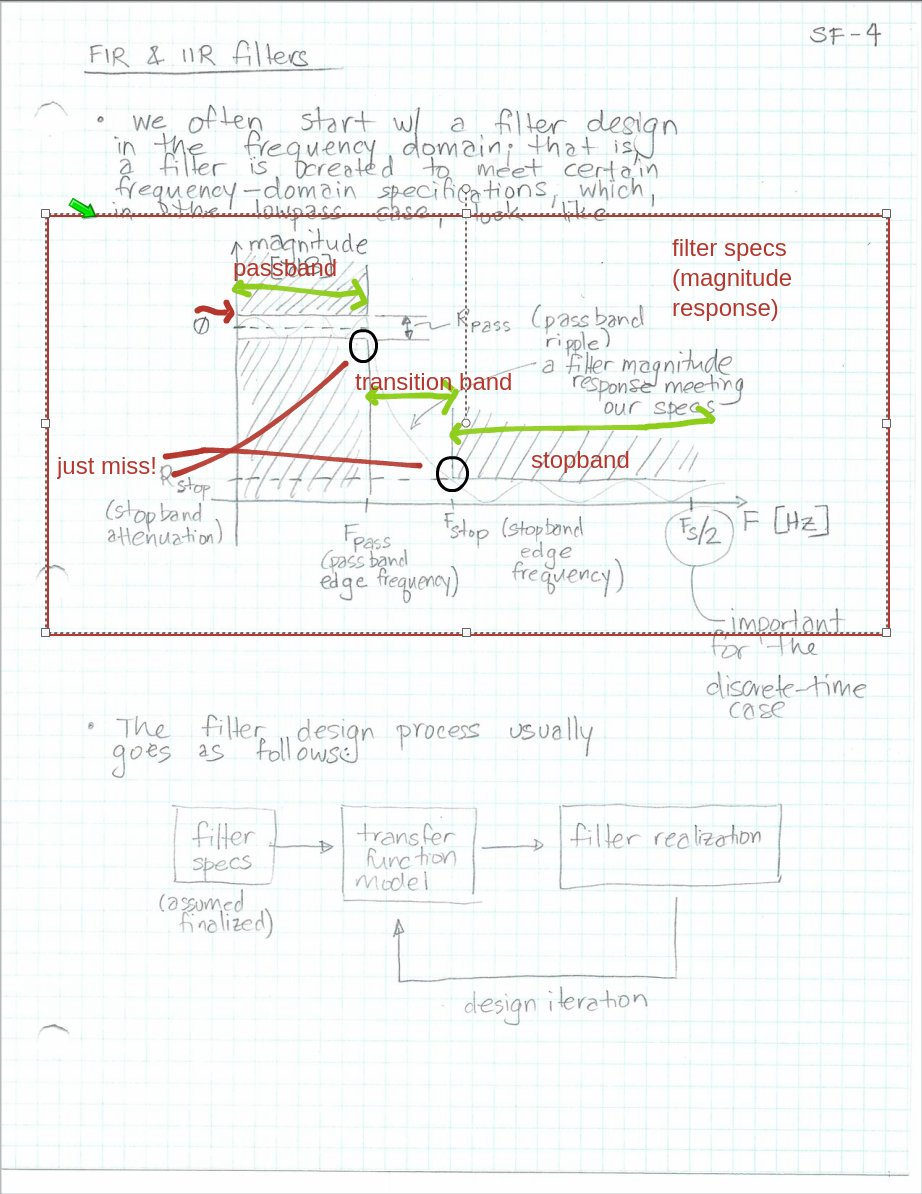 SF-4
FIR & IIR filters
• we often start w/ a filter design
in the frequency domain; that is,
a filter is created to meet certain
frequency-domain specifications, which,
in the lowpass case, look like
magnitude
passband
filter specs
(magnitude
response)
Ø
Rpass (passband
ripple)
a filter magnitude
response meeting
our specs
transition band
stopband
just miss!
Rstop
(stopband
attenuation)
Fpass
(passband
edge frequency)
Fstop (stopband
edge
frequency)
Fs/2
F [Hz]
important
for the
discrete-time
case
• The filter design process usually
goes as follows:
filter
specs
(assumed
finalized)
transfer
function
model
filter realization
design iteration